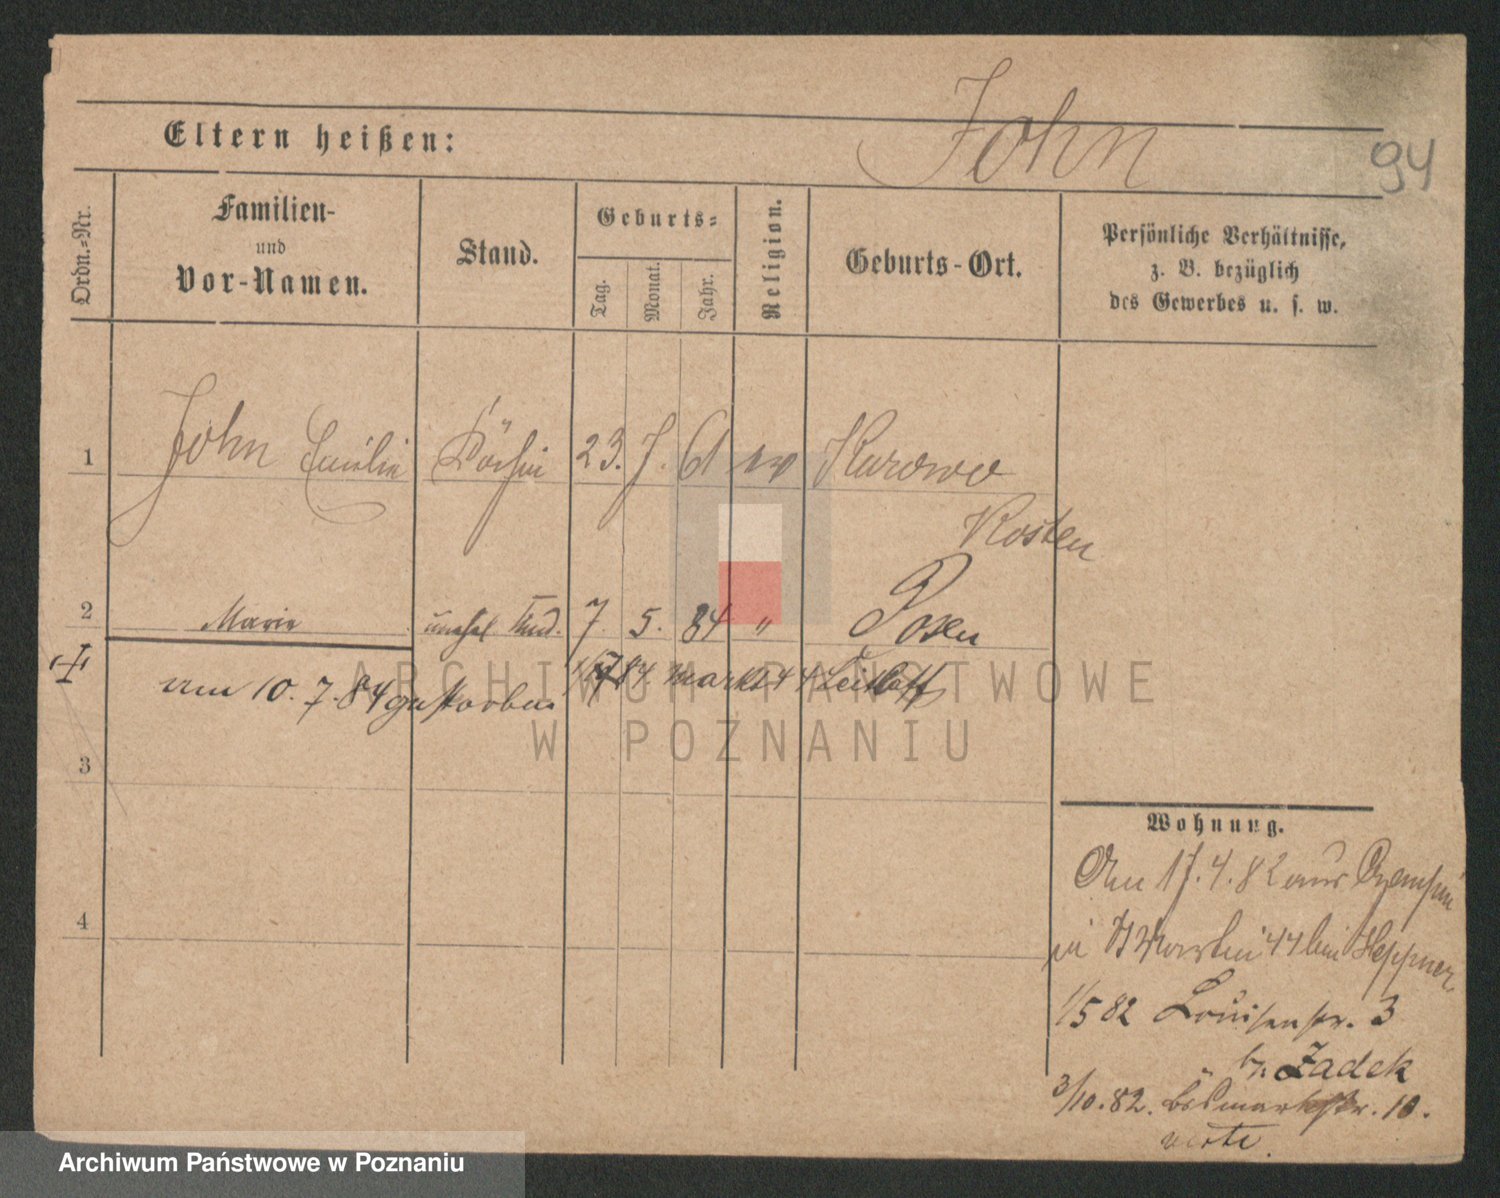 John
94
Eltern heißen:
Ordn.-Nr.
Familien-
und
Vor-Namen.
Stand.
Geburts-
Tag.
Monat.
Jahr.
Religion.
Geburts-Ort.
Persönliche Verhältnisse,
z. B. bezüglich
des Gewerbes u. s. w.
1 John Emilie Köchin 23. 7. 61 ev Kurowo
Kosten
2 Marie unehel. Kind. 7. 5. 84 " Posen
am 10. 7. 84 gestorben Markt 44
3
4
Wohnung.
Am 17. 4. 82 aus Czempin
in St Martin 44 bei Heppner
1/5 82 Louisenstr. 3
b. Zadek
3/10. 82. Bismarckstr. 10.
ARCHIWUM PAŃSTWOWE
W POZNANIU
Archiwum Państwowe w Poznaniu